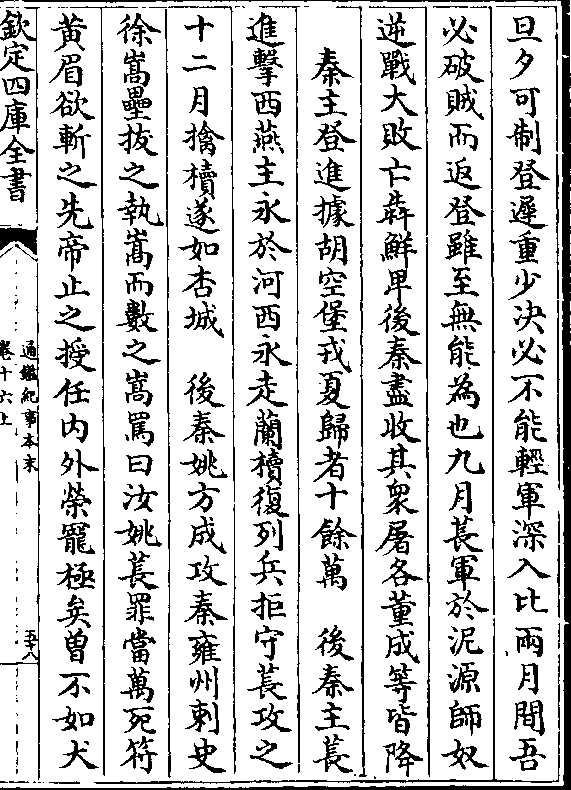 旦夕可制登遲重少決必不能輕軍深入比兩月間吾
必破賊而返登雖至無能為也九月萇軍於泥源師奴
逆戰大敗亡犇鮮卑後秦盡收其衆屠各董成等皆降
秦主登進據胡空堡戎夏歸者十餘萬　後秦主萇
進擊西燕主永於河西永走蘭櫝復列兵拒守萇攻之
十二月擒櫝遂如杏城　後秦姚方成攻秦雍州刺史
徐嵩壘拔之執嵩而數之嵩罵曰汝姚萇罪當萬死符
黃眉欲斬之先帝止之授任内外榮寵極矣曽不如犬
欽定四庫全書
通鑑紀事本末
卷十六上
五十八